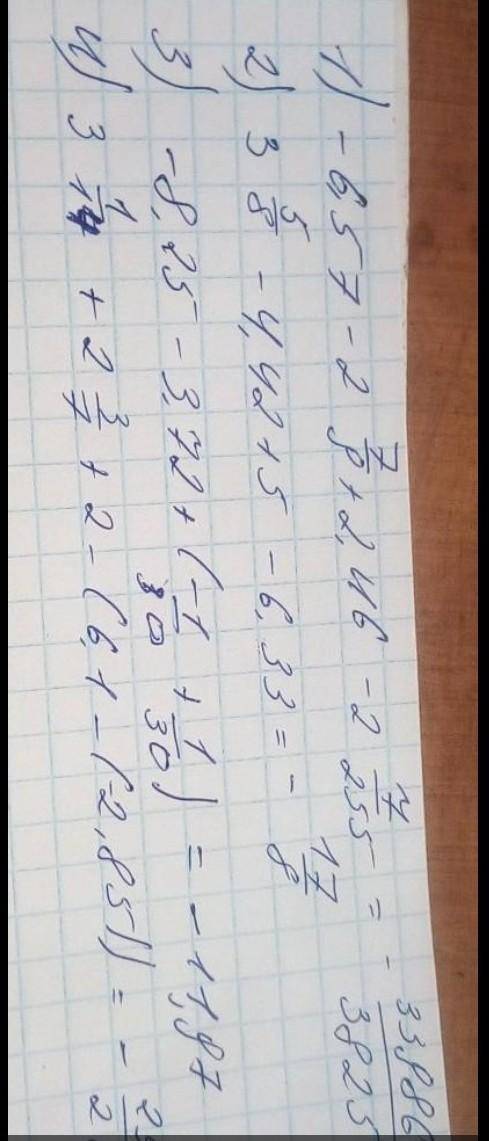 1) -6,57 - 2 7/9 + 2,46 - 2 7/255 = - 33886/3825
2) 3 5/8 - 4,42 + 5 - 6,33 = - 17/8
3) -8,25 - 3,72 + (-1/30 + 1/30) = -11,97
4) 3 1/14 + 2 3/7 + 2 - (6,1 - (-2,85)) = -